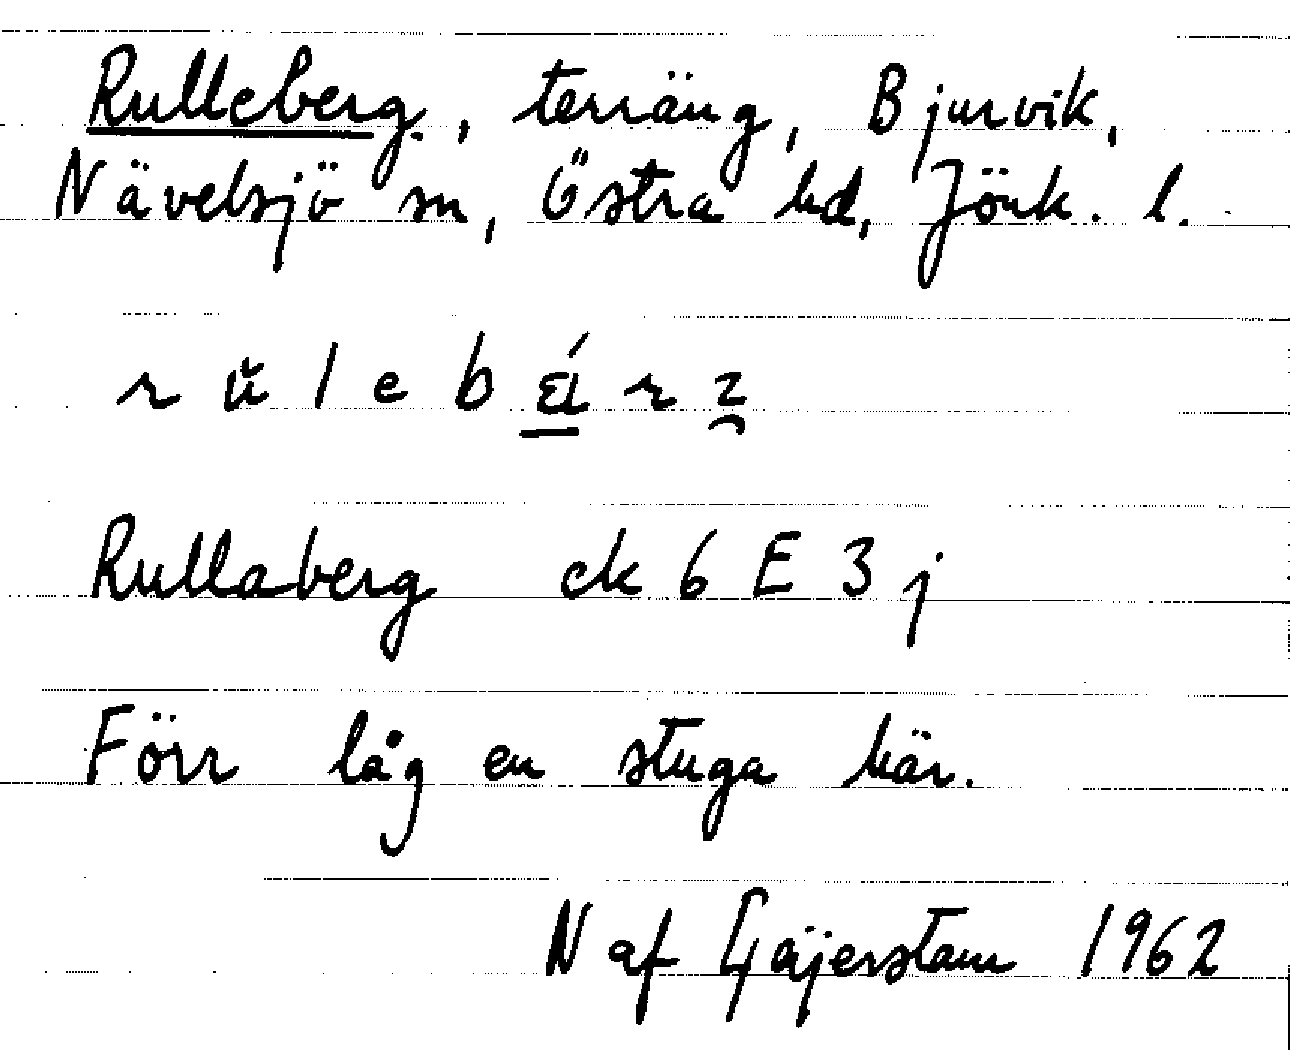 Rulleberg, terräng, Bjurvik,
Nävelsjö sn, Östra hd, Jönk. l.
Rullaberg ek 6 E 3 j
Förr låg en stuga här.
N af Gäijerstam 1962